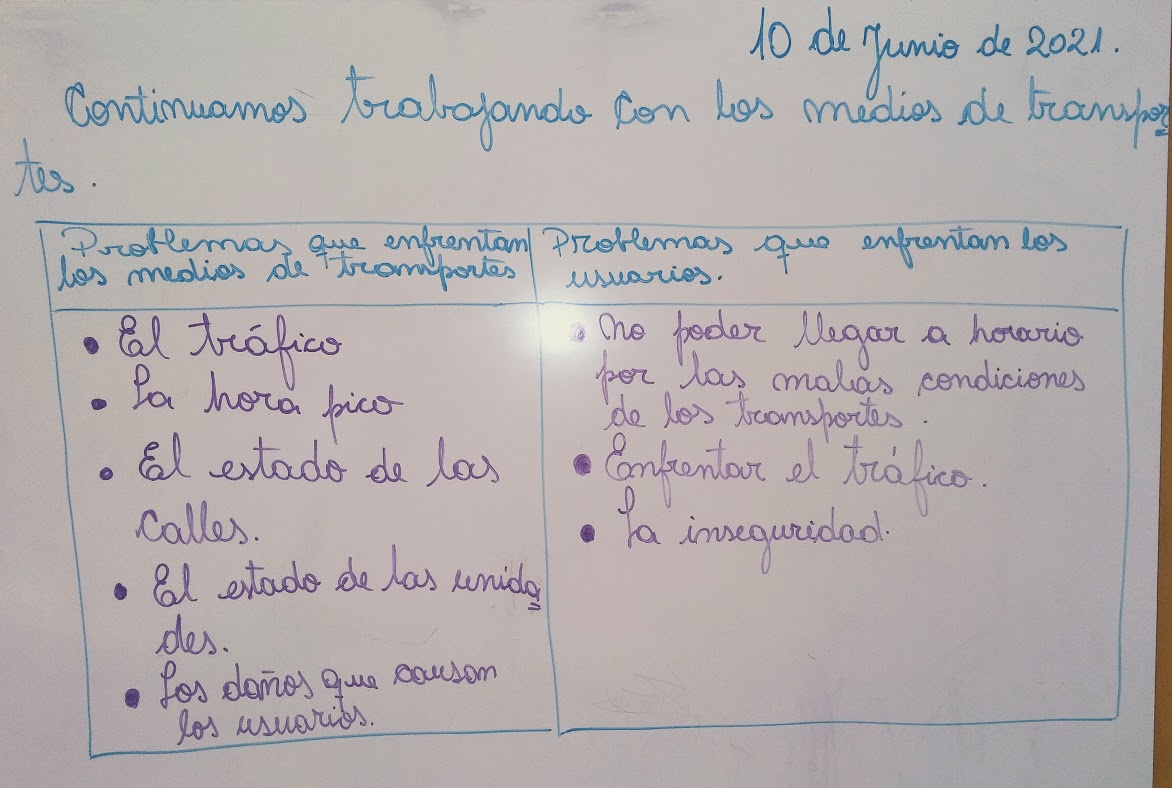 10 de Junio de 2021.
Continuamos trabajando con los medios de transpor
tes.
Problemas que enfrentan
los medios de transportes
Problemas que enfrentan los
usuarios.
• El tráfico
• La hora pico
• El estado de las
calles.
• El estado de las unida
des.
• Los daños que causan
los usuarios.
• no poder llegar a horario
por las malas condiciones
de los transportes.
• Enfrentar el tráfico.
• La inseguridad.